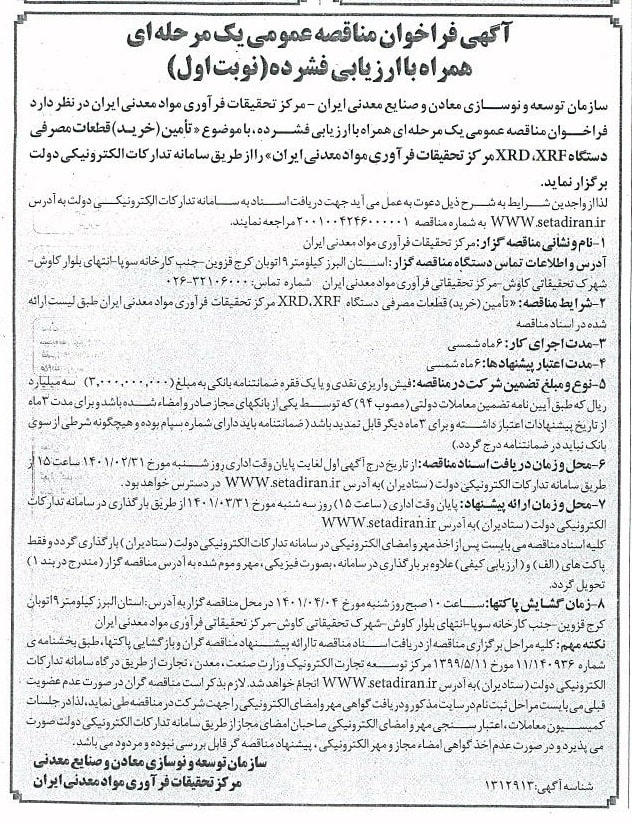 آگهی فراخوان مناقصه عمومی یک مرحله‌ای
همراه با ارزیابی فشرده (نوبت اول)
سازمان توسعه و نوسازی معادن و صنایع معدنی ایران - مرکز تحقیقات فرآوری مواد معدنی ایران در نظر دارد
فراخوان مناقصه عمومی یک مرحله‌ای همراه با ارزیابی فشرده، با موضوع «تأمین (خرید) قطعات مصرفی
دستگاه XRD،XRF مرکز تحقیقات فرآوری مواد معدنی ایران» را از طریق سامانه تدارکات الکترونیکی دولت
برگزار نماید.
لذا از واجدین شرایط به شرح ذیل دعوت به عمل می آید جهت دریافت اسناد به سامانه تدارکات الکترونیکی دولت به آدرس
WWW.setadiran.ir به شماره مناقصه ۲۰۰۱۰۰۴۲۴۶۰۰۰۰۰۱ مراجعه نمایند.
۱-نام و نشانی مناقصه گزار: مرکز تحقیقات فرآوری مواد معدنی ایران
آدرس و اطلاعات تماس دستگاه مناقصه گزار: استان البرز کیلومتر ۹ اتوبان کرج قزوین-جنب کارخانه سوپا-انتهای بلوار کاوش-
شهرک تحقیقاتی کاوش-مرکز تحقیقاتی فرآوری مواد معدنی ایران شماره تماس: ۳۲۱۰۶۰۰۰-۰۲۶
۲-شرایط مناقصه: «تأمین (خرید) قطعات مصرفی دستگاه XRD،XRF مرکز تحقیقات فرآوری مواد معدنی ایران طبق لیست ارائه
شده در اسناد مناقصه
۳-مدت اجرای کار: ۶ ماه شمسی
۴-مدت اعتبار پیشنهادها: ۶ ماه شمسی
۵-نوع و مبلغ تضمین شرکت در مناقصه: فیش واریزی نقدی و یا یک فقره ضمانتنامه بانکی به مبلغ (۳,۰۰۰,۰۰۰,۰۰۰) سه میلیارد
ریال که طبق آیین نامه تضمین معاملات دولتی (مصوب ۹۴) که توسط یکی از بانکهای مجاز صادر و امضاء شده باشد و برای مدت ۳ ماه
از تاریخ پیشنهادات اعتبار داشته و برای ۳ ماه دیگر قابل تمدید باشد (ضمانتنامه باید دارای شماره سپام بوده و هیچگونه شرطی از سوی
بانک نباید در ضمانتنامه درج گردد.)
۶-محل و زمان دریافت اسناد مناقصه: از تاریخ درج آگهی اول لغایت پایان وقت اداری روز شنبه مورخ ۱۴۰۱/۰۲/۳۱ ساعت ۱۵ از
طریق سامانه تدارکات الکترونیکی دولت (ستادیران) به آدرس WWW.setadiran.ir در دسترس خواهد بود.
۷-محل و زمان ارائه پیشنهاد: پایان وقت اداری (ساعت ۱۵) روز سه شنبه مورخ ۱۴۰۱/۰۳/۳۱ از طریق بارگذاری در سامانه تدارکات
الکترونیکی دولت (ستادیران) به آدرس WWW.setadiran.ir
کلیه اسناد مناقصه می بایست پس از اخذ مهر و امضای الکترونیکی در سامانه تدارکات الکترونیکی دولت (ستادیران) بارگذاری گردد و فقط
پاکت های (الف) و (ارزیابی کیفی) علاوه بر بارگذاری در سامانه، بصورت فیزیکی، مهر و موم شده به آدرس مناقصه گزار (مندرج در بند ۱)
تحویل گردد.
۸-زمان گشایش پاکتها: ساعت ۱۰ صبح روز شنبه مورخ ۱۴۰۱/۰۴/۰۴ در محل مناقصه گزار به آدرس: استان البرز کیلومتر ۹ اتوبان
کرج قزوین-جنب کارخانه سوپا-انتهای بلوار کاوش-شهرک تحقیقاتی کاوش-مرکز تحقیقاتی فرآوری مواد معدنی ایران
نکته مهم: کلیه مراحل برگزاری مناقصه از دریافت اسناد مناقصه تا ارائه پیشنهاد مناقصه گران و بازگشایی پاکتها، طبق بخشنامه ی
شماره ۱۱/۱۴۰۹۳۶ مورخ ۱۳۹۹/۵/۱۱ مرکز توسعه تجارت الکترونیک وزارت صنعت، معدن، تجارت از طریق درگاه سامانه تدارکات
الکترونیکی دولت (ستادیران) به آدرس WWW.setadiran.ir انجام خواهد شد. لازم بذکر است مناقصه گران در صورت عدم عضویت
قبلی می بایست مراحل ثبت نام در سایت مذکور و دریافت گواهی مهر و امضای الکترونیکی را جهت شرکت در مناقصه طی نماید، لذا در جلسات
کمیسیون معاملات، اعتبار سنجی مهر و امضای الکترونیکی صاحبان امضای مجاز از طریق سامانه تدارکات الکترونیکی دولت صورت
می پذیرد و در صورت عدم اخذ گواهی امضاء مجاز و مهر الکترونیکی، پیشنهاد مناقصه گر قابل بررسی نبوده و مردود می باشد.
سازمان توسعه و نوسازی معادن و صنایع معدنی
مرکز تحقیقات فرآوری مواد معدنی ایران
شناسه آگهی: ۱۳۱۲۹۱۳